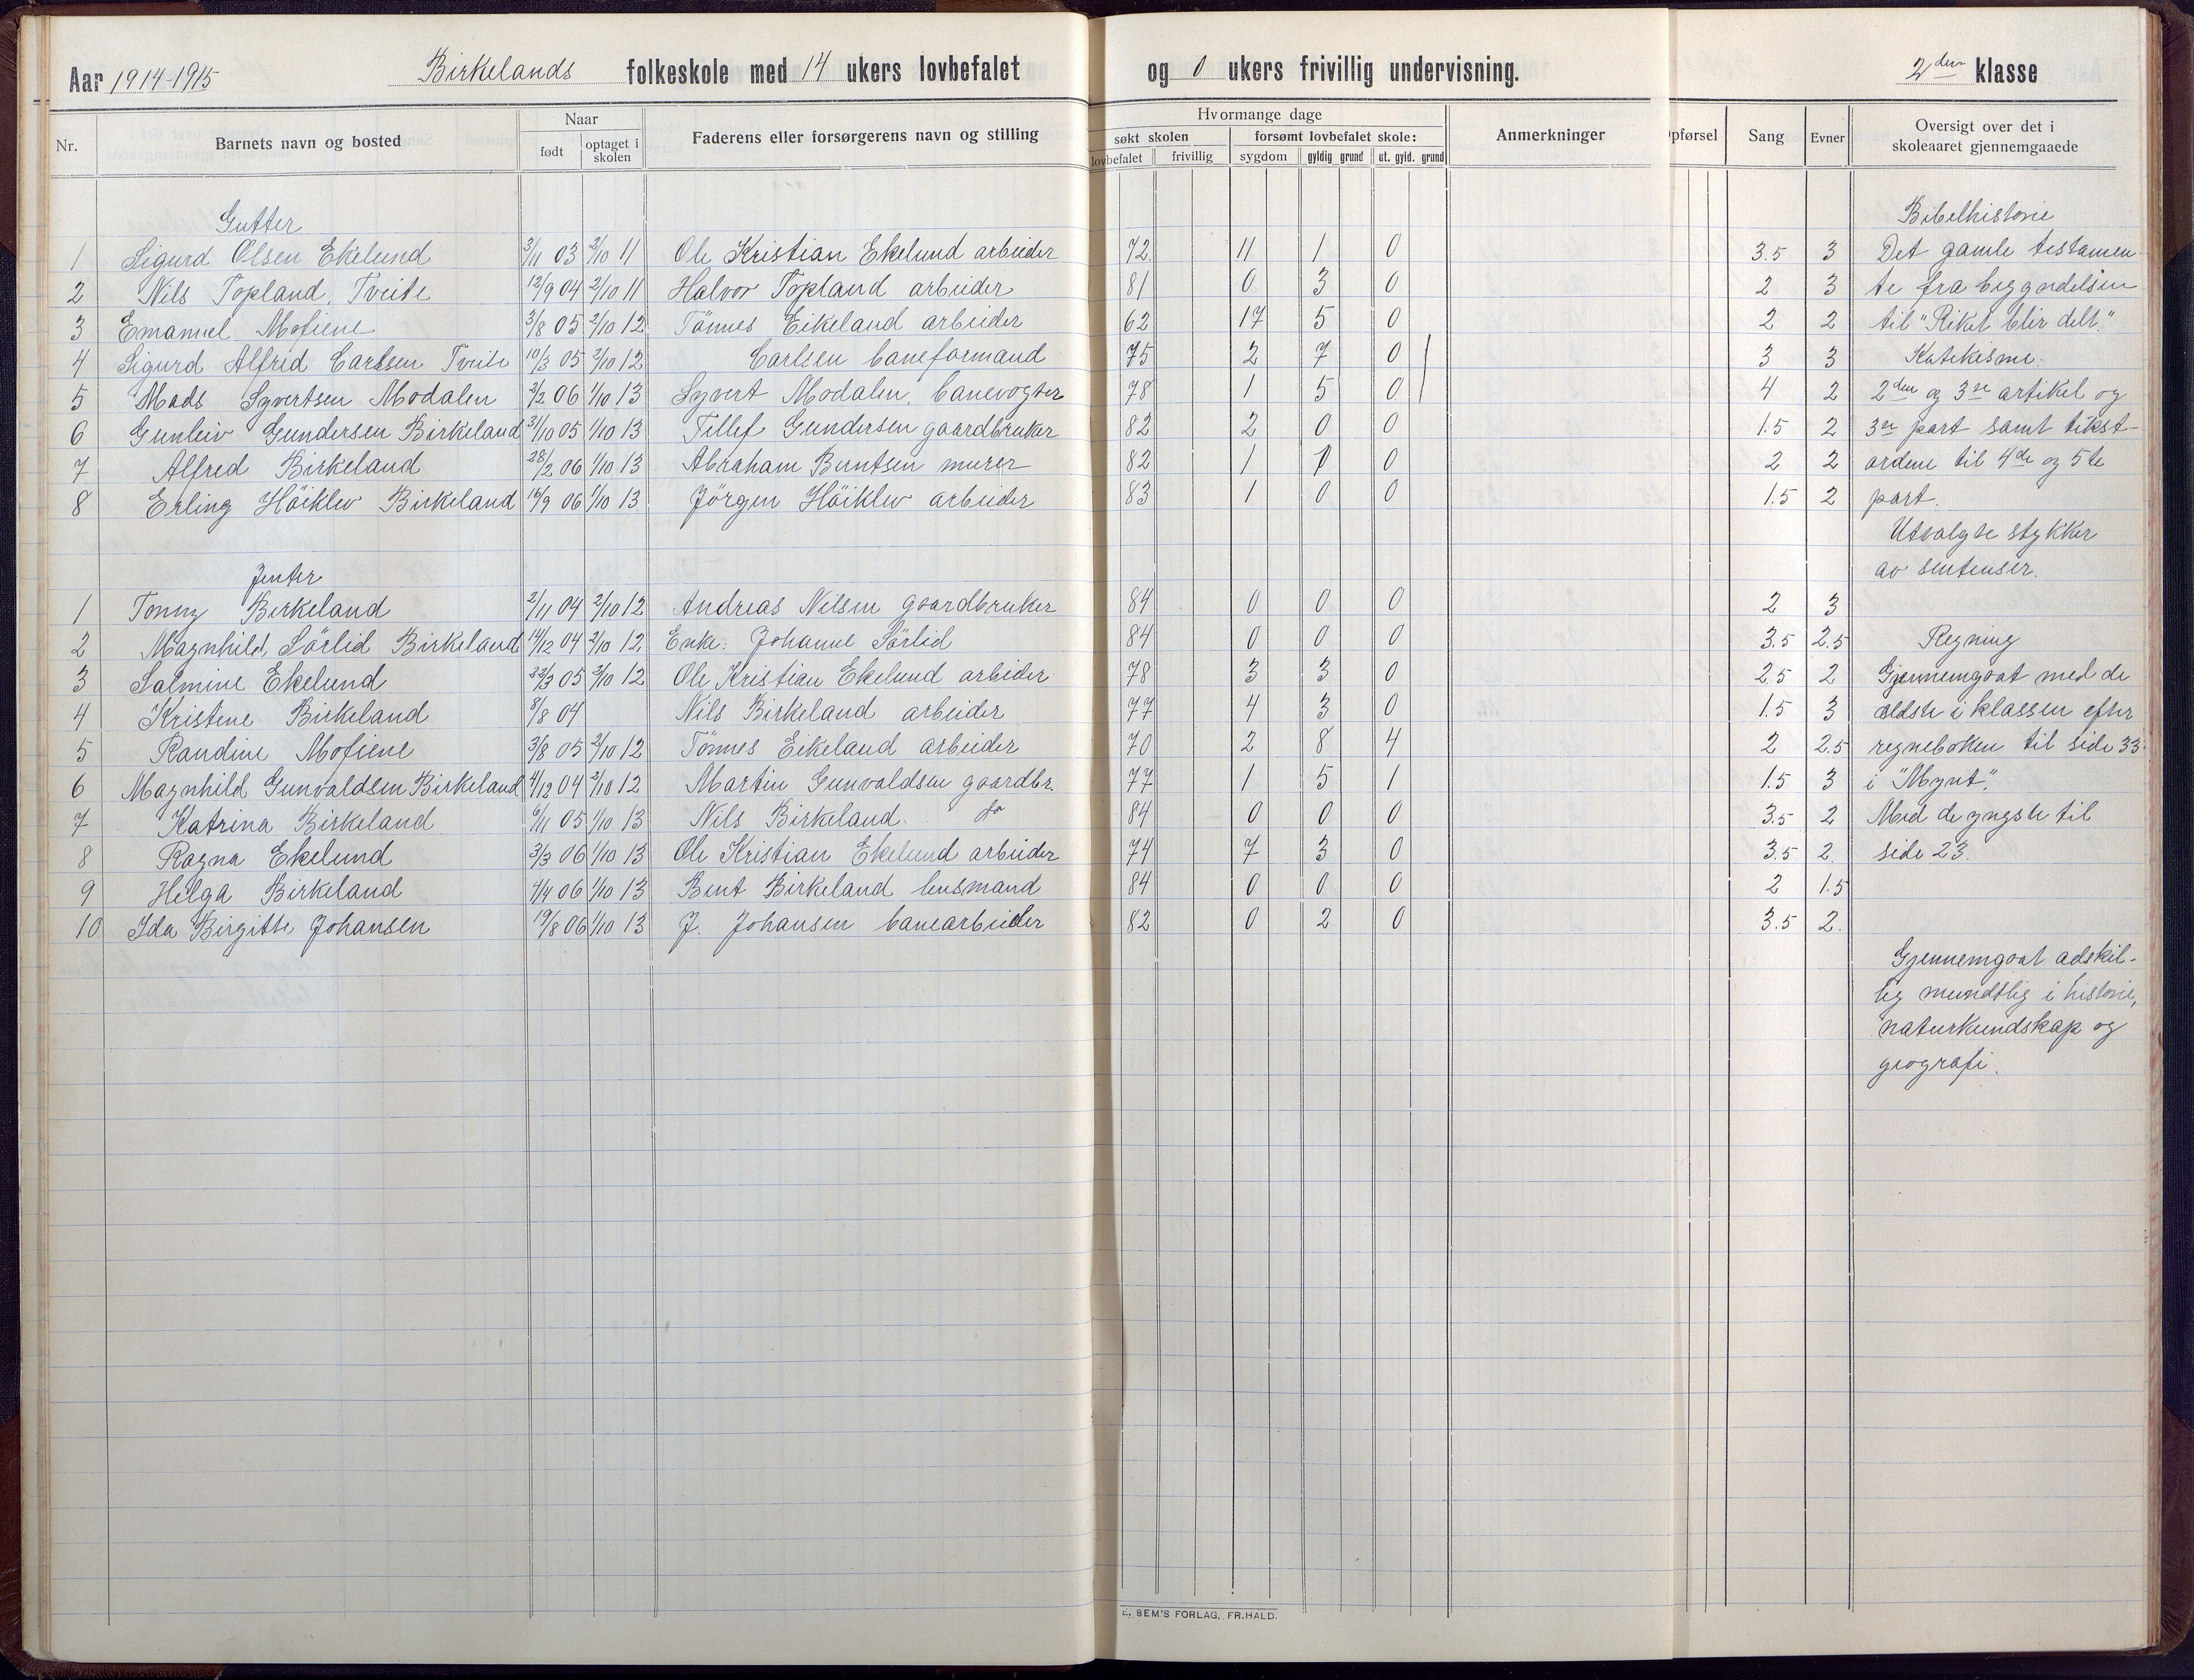 Aar 1914-1915 Birkelands folkeskole med 14 ukers lovbefalet og 0 ukers frivillig undervisning. 2den klasse
Nr. Barnets navn og bosted Naar født optaget i skolen Faderens eller forsørgerens navn og stilling Hvormange dage søkt skolen lovbefalet frivillig forsømt lovbefalet skole: sygdom gyldig grund ut. gyld. grund Anmerkninger pførsel Sang Evner Oversigt over det i skoleaaret gjennemgaaede
Gutter Bibelhistorie
1 Sigurd Olsen Ekelund 3/11 03 2/10 11 Ole Kristian Ekelund arbeider 72. 11 1 0 3.5 3 Det gamle testamen-
2 Nils Topland, Tveite 12/9 04 2/10 11 Halvor Topland arbeider 81 0 3 0 2 3 te fra begyndelsen
3 Emanuel Mofiene 3/8 05 2/10 12 Tönnes Eikeland arbeider 62 17 5 0 2 2 til "Riket blir delt."
4 Sigurd Alfred Carlsen Tveite 10/3 05 2/10 12 Carlsen baneformand 75 2 7 0 3 3 Katekisme.
5 Mads Syvertsen Modalen 2/2 06 1/10 13 Syvert Modalen, banevogter 78 1 5 0 4 2 2den og 3die artikel og
6 Gunleiv Gundersen Birkeland 31/10 05 1/10 13 Tellef Gundersen gaardbruker 82 2 0 0 1.5 2 3die part samt tekst-
7 Alfred Birkeland 28/2 06 1/10 13 Abraham Berntsen murer 82 1 1 0 2 2 ordene til 4de og 5te
8 Erling Höiklev Birkeland 16/9 06 1/10 13. Jörgen Höiklev arbeider 83 1 0 0 1.5 2 part.
Utvalgte stykker
av sentenser.
Jenter
1 Tonny Birkeland 2/11 04 2/10 12 Andreas Nilsen gaardbruker 84 0 0 0 2 3
2 Magnhild Sörlid Birkeland 14/12 04 2/10 12 Enke: Johanne Sörlid 84 0 0 0 3.5 2.5 Regning
3 Salmine Ekelund 23/3 05 2/10 12 Ole Kristian Ekelund arbeider 78 3 3 0 2.5 2 Gjennemgaat med de
4 Kristene Birkeland 8/8 04 Nils Birkeland arbeider 77 4 3 0 1.5 3 ældste i klassen efter
5 Randine Mofiene 3/8 05 2/10 12 Tönnes Eikeland arbeider 70 2 8 4 2 2.5 regneboken til side 33
6 Magnhild Gunvaldsen Birkeland 4/12 04 2/10 12 Martin Gunvaldsen gaardbr. 77 1 5 1 1.5 3 i "Mynt."
7 Katrina Birkeland 6/11 05 1/10 13 Nils Birkeland. do 84 0 0 0 3.5 2 Med de yngste til
8 Ragna Ekelund 3/3 06 1/10 13 Ole Kristian Ekelund arbeider 74 7 3 0 3.5 2. side 23.
9 Helga Birkeland 7/4 06 1/10 13 Bent Birkeland lensmand 84 0 0 0 2 1.5
10 Ida Birgitte Johansen 19/8 06 1/10 13 J. Johansen banearbeider 82 0 2 0 3.5 2.
Gjennemgaat adskil-
lig mundtlig i historie,
naturkundskap og
geografi.
SEM'S FORLAG, FR.HALD.